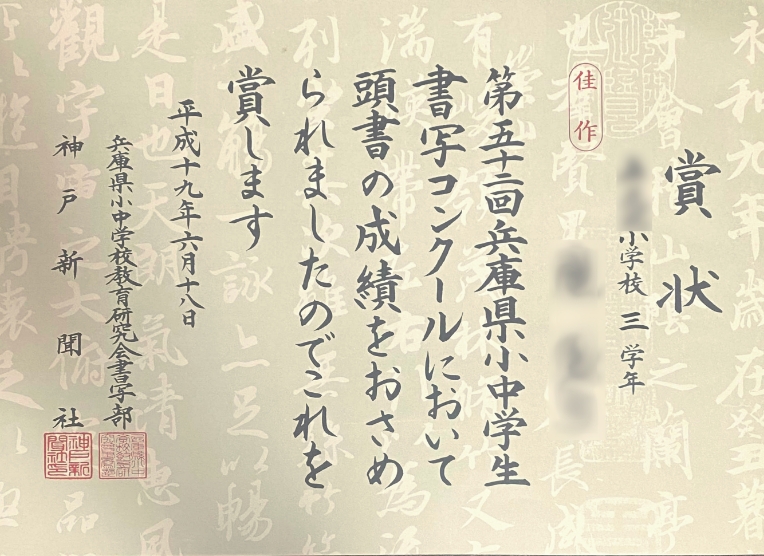 賞状
小学校三学年
佳作
第五十二回兵庫県小中学生
書写コンクールにおいて
頭書の成績をおさめ
られましたのでこれを
賞します
平成十九年六月十八日
兵庫県小中学校教育研究会書写部
神戸新聞社